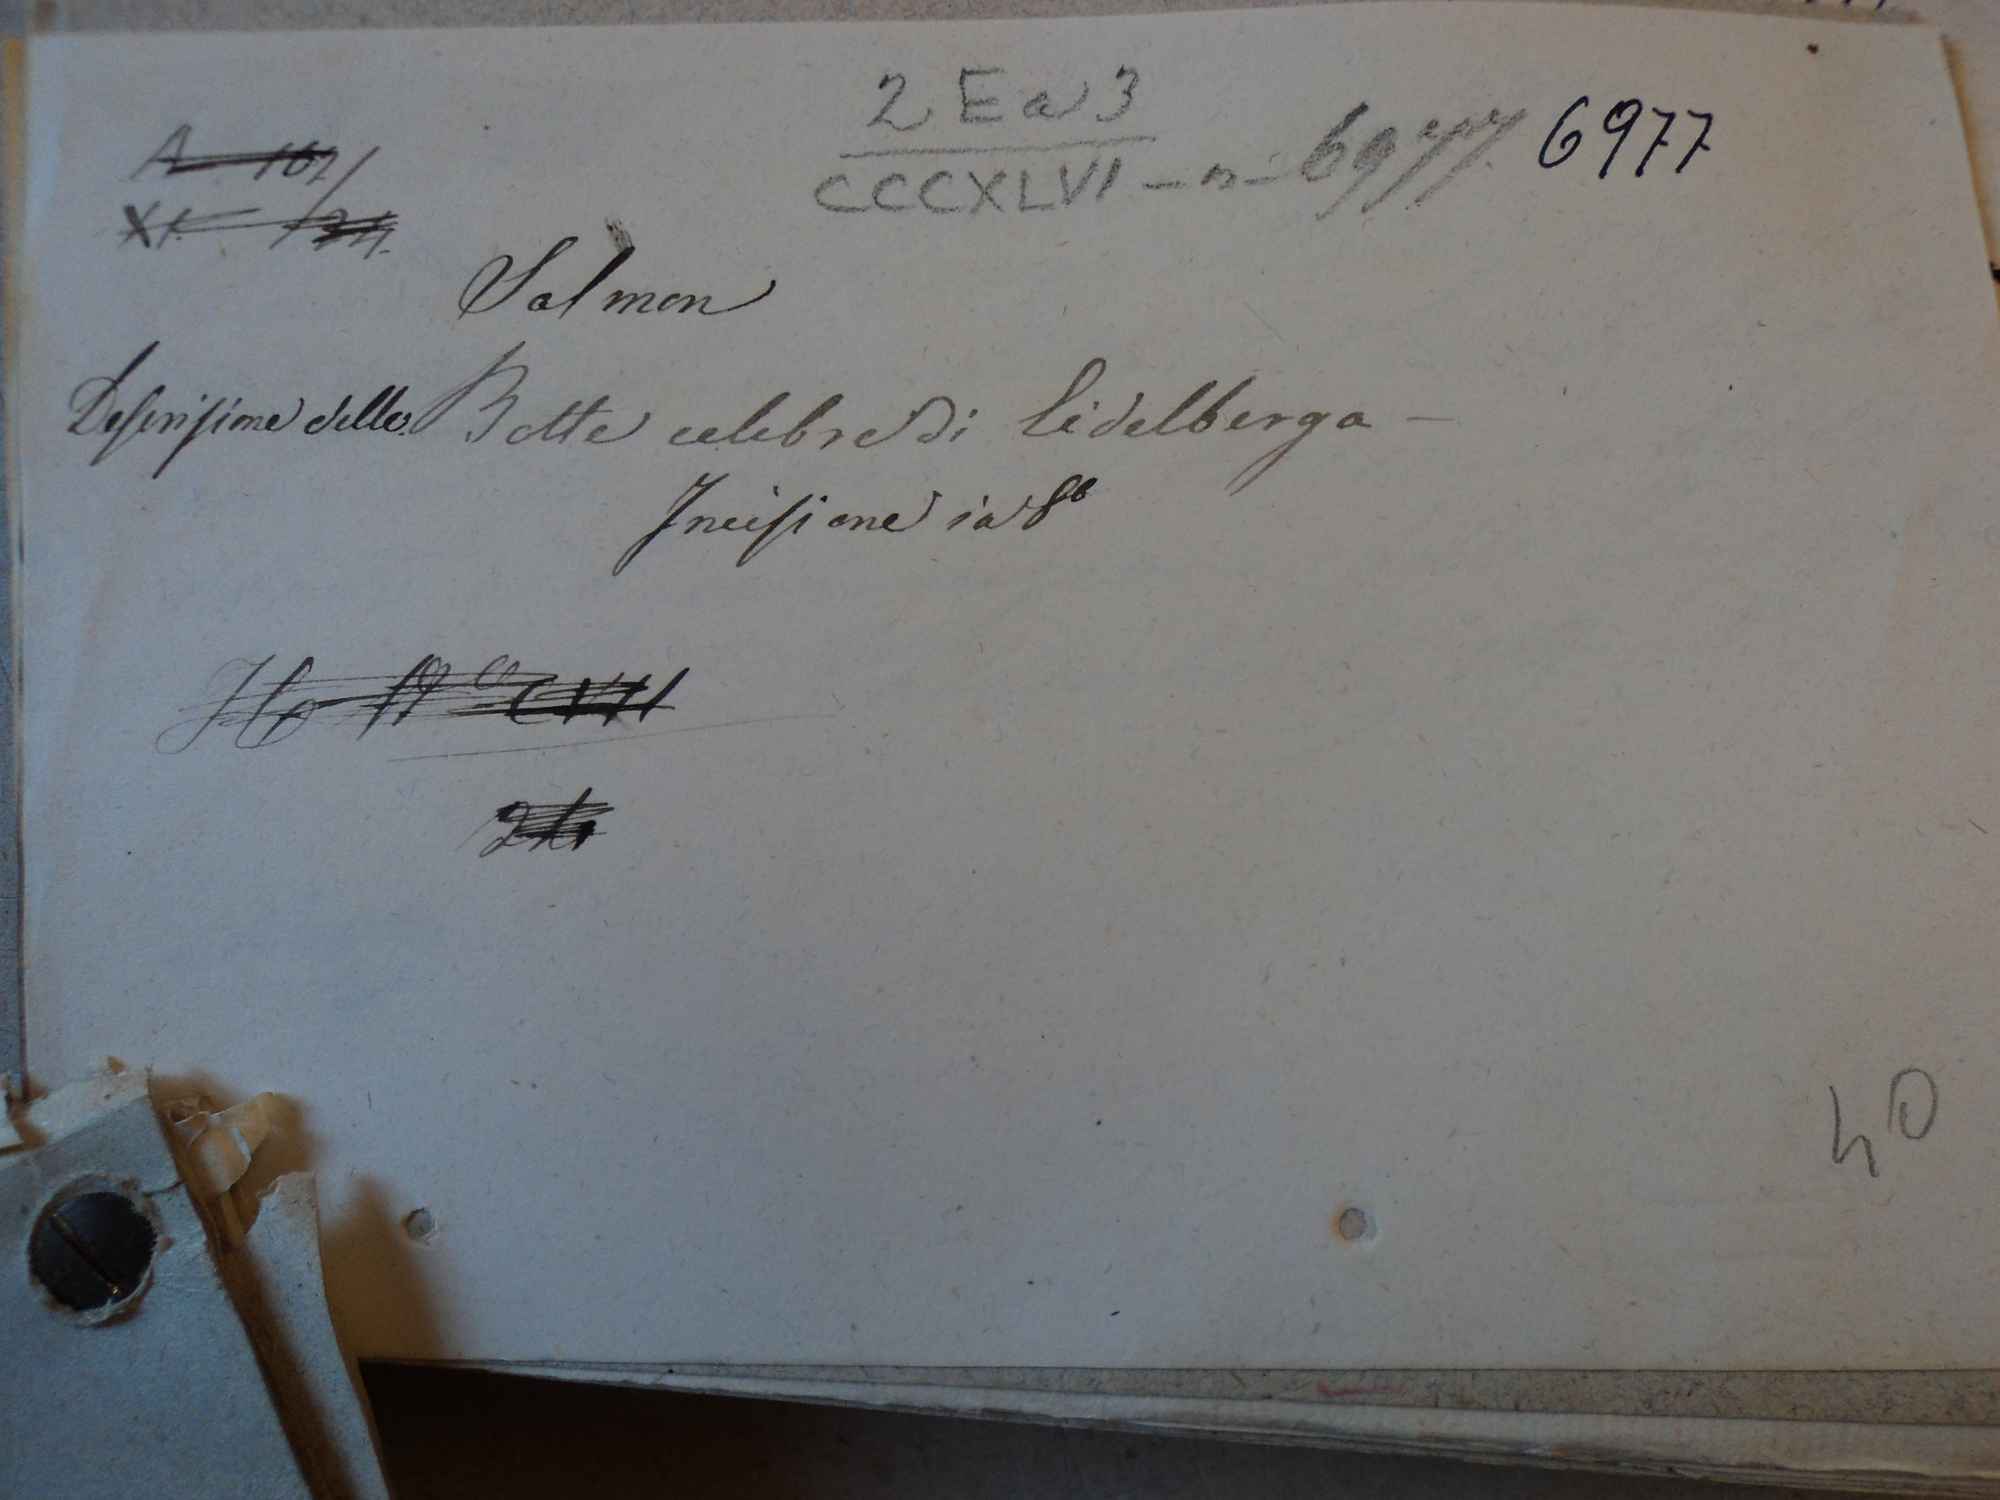 2 E a 3
CCCXLVI - n - 6977 6977
A 167/
XI
Salmon
Descrisione della Botte celebre di Eidelberga -
Incisione in 8º
24
40